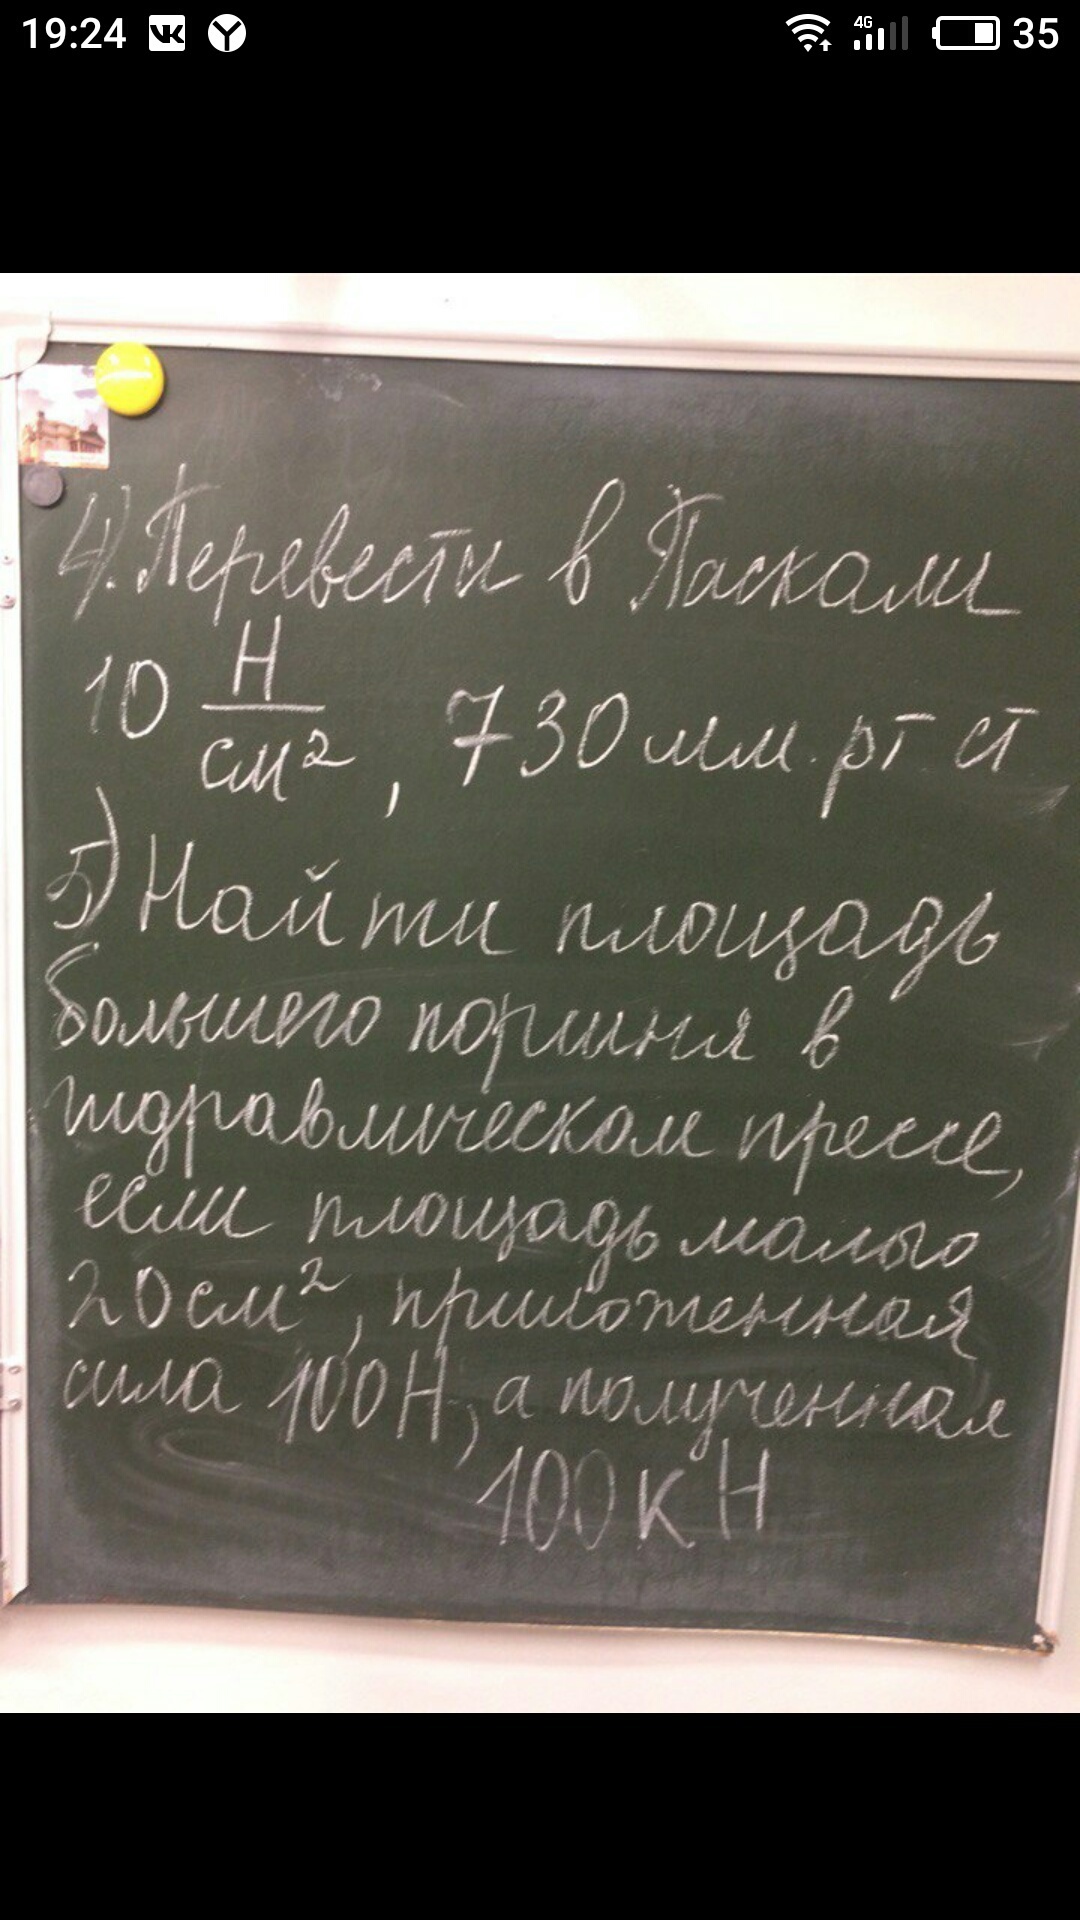 19:24 4G 35
4). Перевести в Паскали
10 Н/см², 730 мм. рт ст
5) Найти площадь
большего поршня в
гидравлическом прессе,
если площадь малого
20 см², приложенная
сила 100 Н, а полученная
100 кН